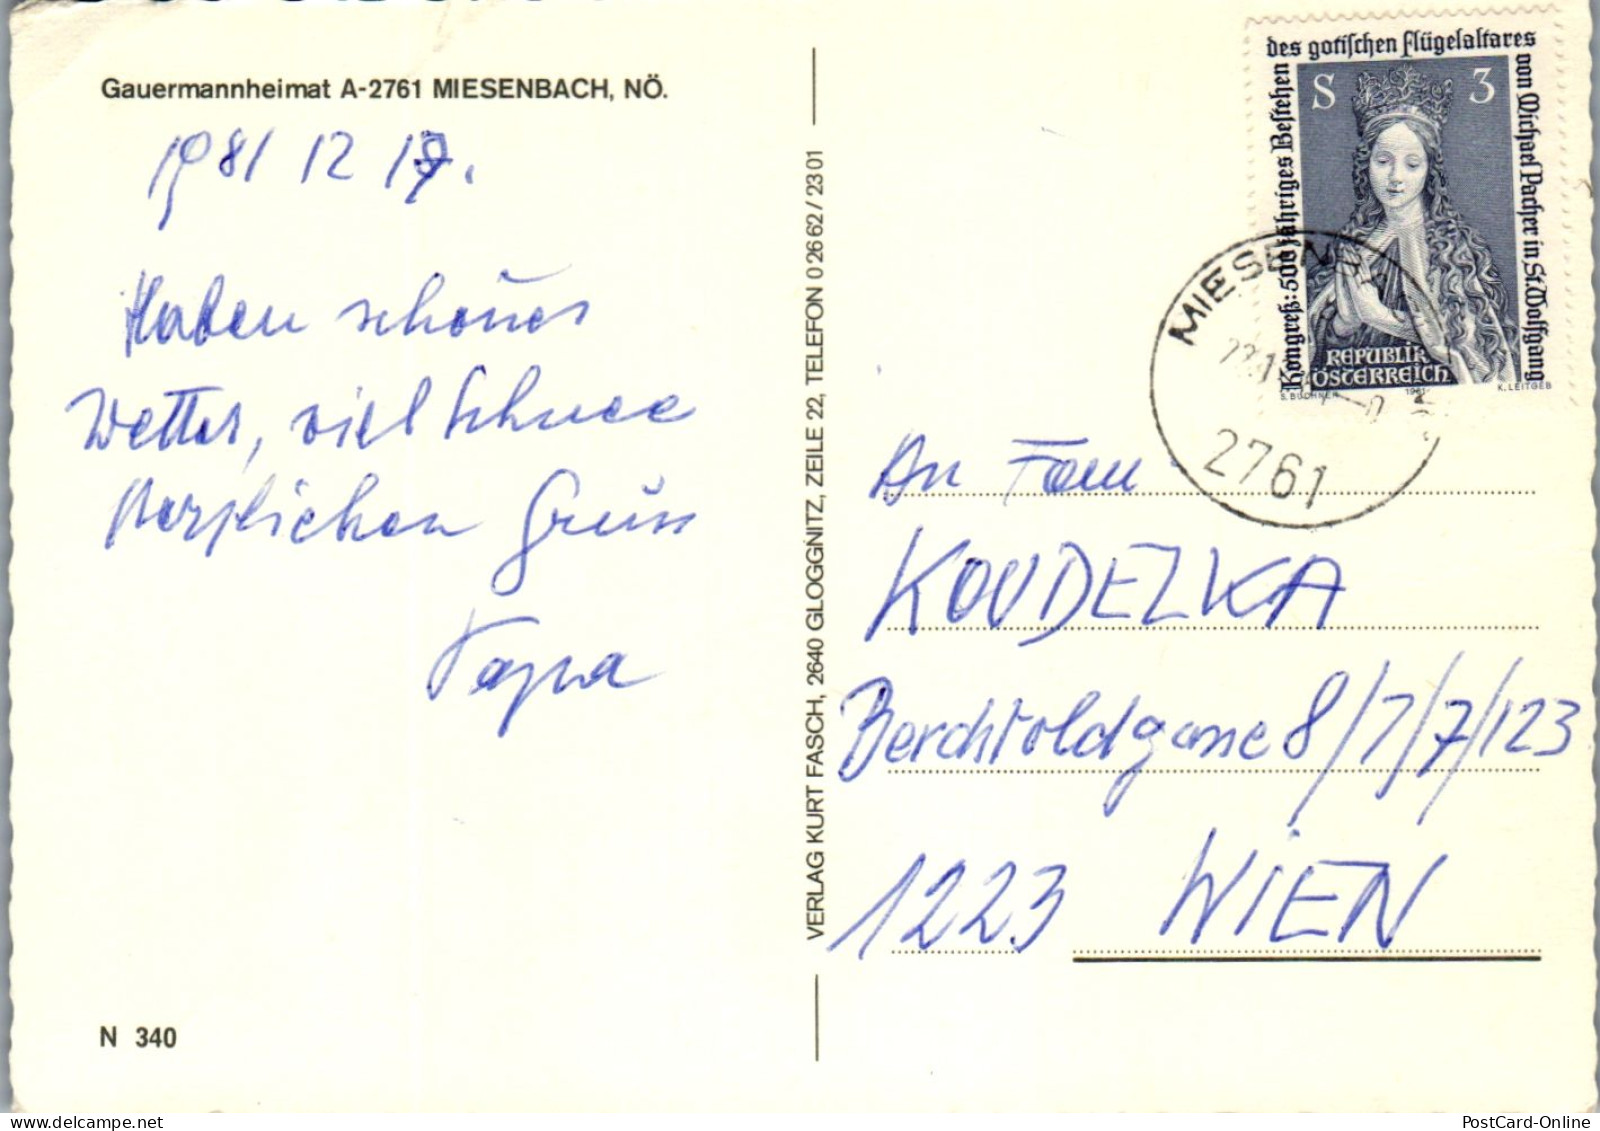 Gauermannheimat A-2761 MIESENBACH, NÖ.
1981 12 19.
Haben schönes
Wetter, viel Schnee
Herzlichen Gruss
Papa
N 340
VERLAG KURT FASCH, 2640 GLOGGNITZ, ZEILE 22, TELEFON 02662/2301
Kongreß: 500 jähriges Bestehen
des gotischen Flügelaltares
von Michael Pacher in St. Wolfgang
S 3
REPUBLIK
ÖSTERREICH
S. BUCHNER 1981 K. LEITGEB
MIESENBACH
2761
An Fam
KOUDEZKA
Berchtoldgasse 8/7/7/123
1223 WIEN
PostCard-Online